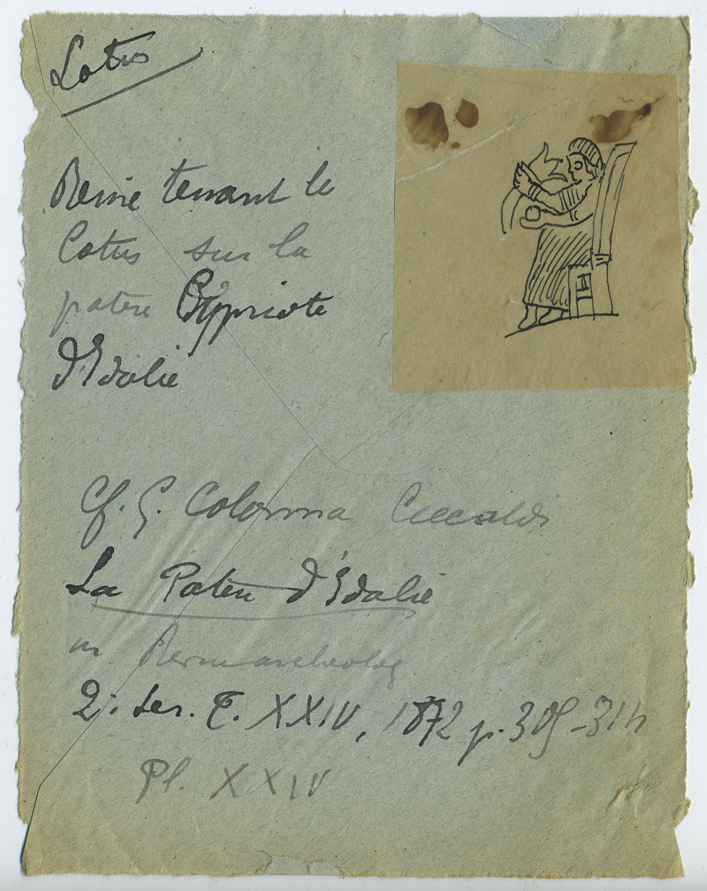 Lotus
Reine tenant le
lotus sur la
patère Cypriote
d'Idalie
Cf. G. Colonna Ceccaldi
La Patère d'Idalie
in Revue archéolog
2e ser. T. XXIV, 1872 p. 305-314
Pl. XXIV